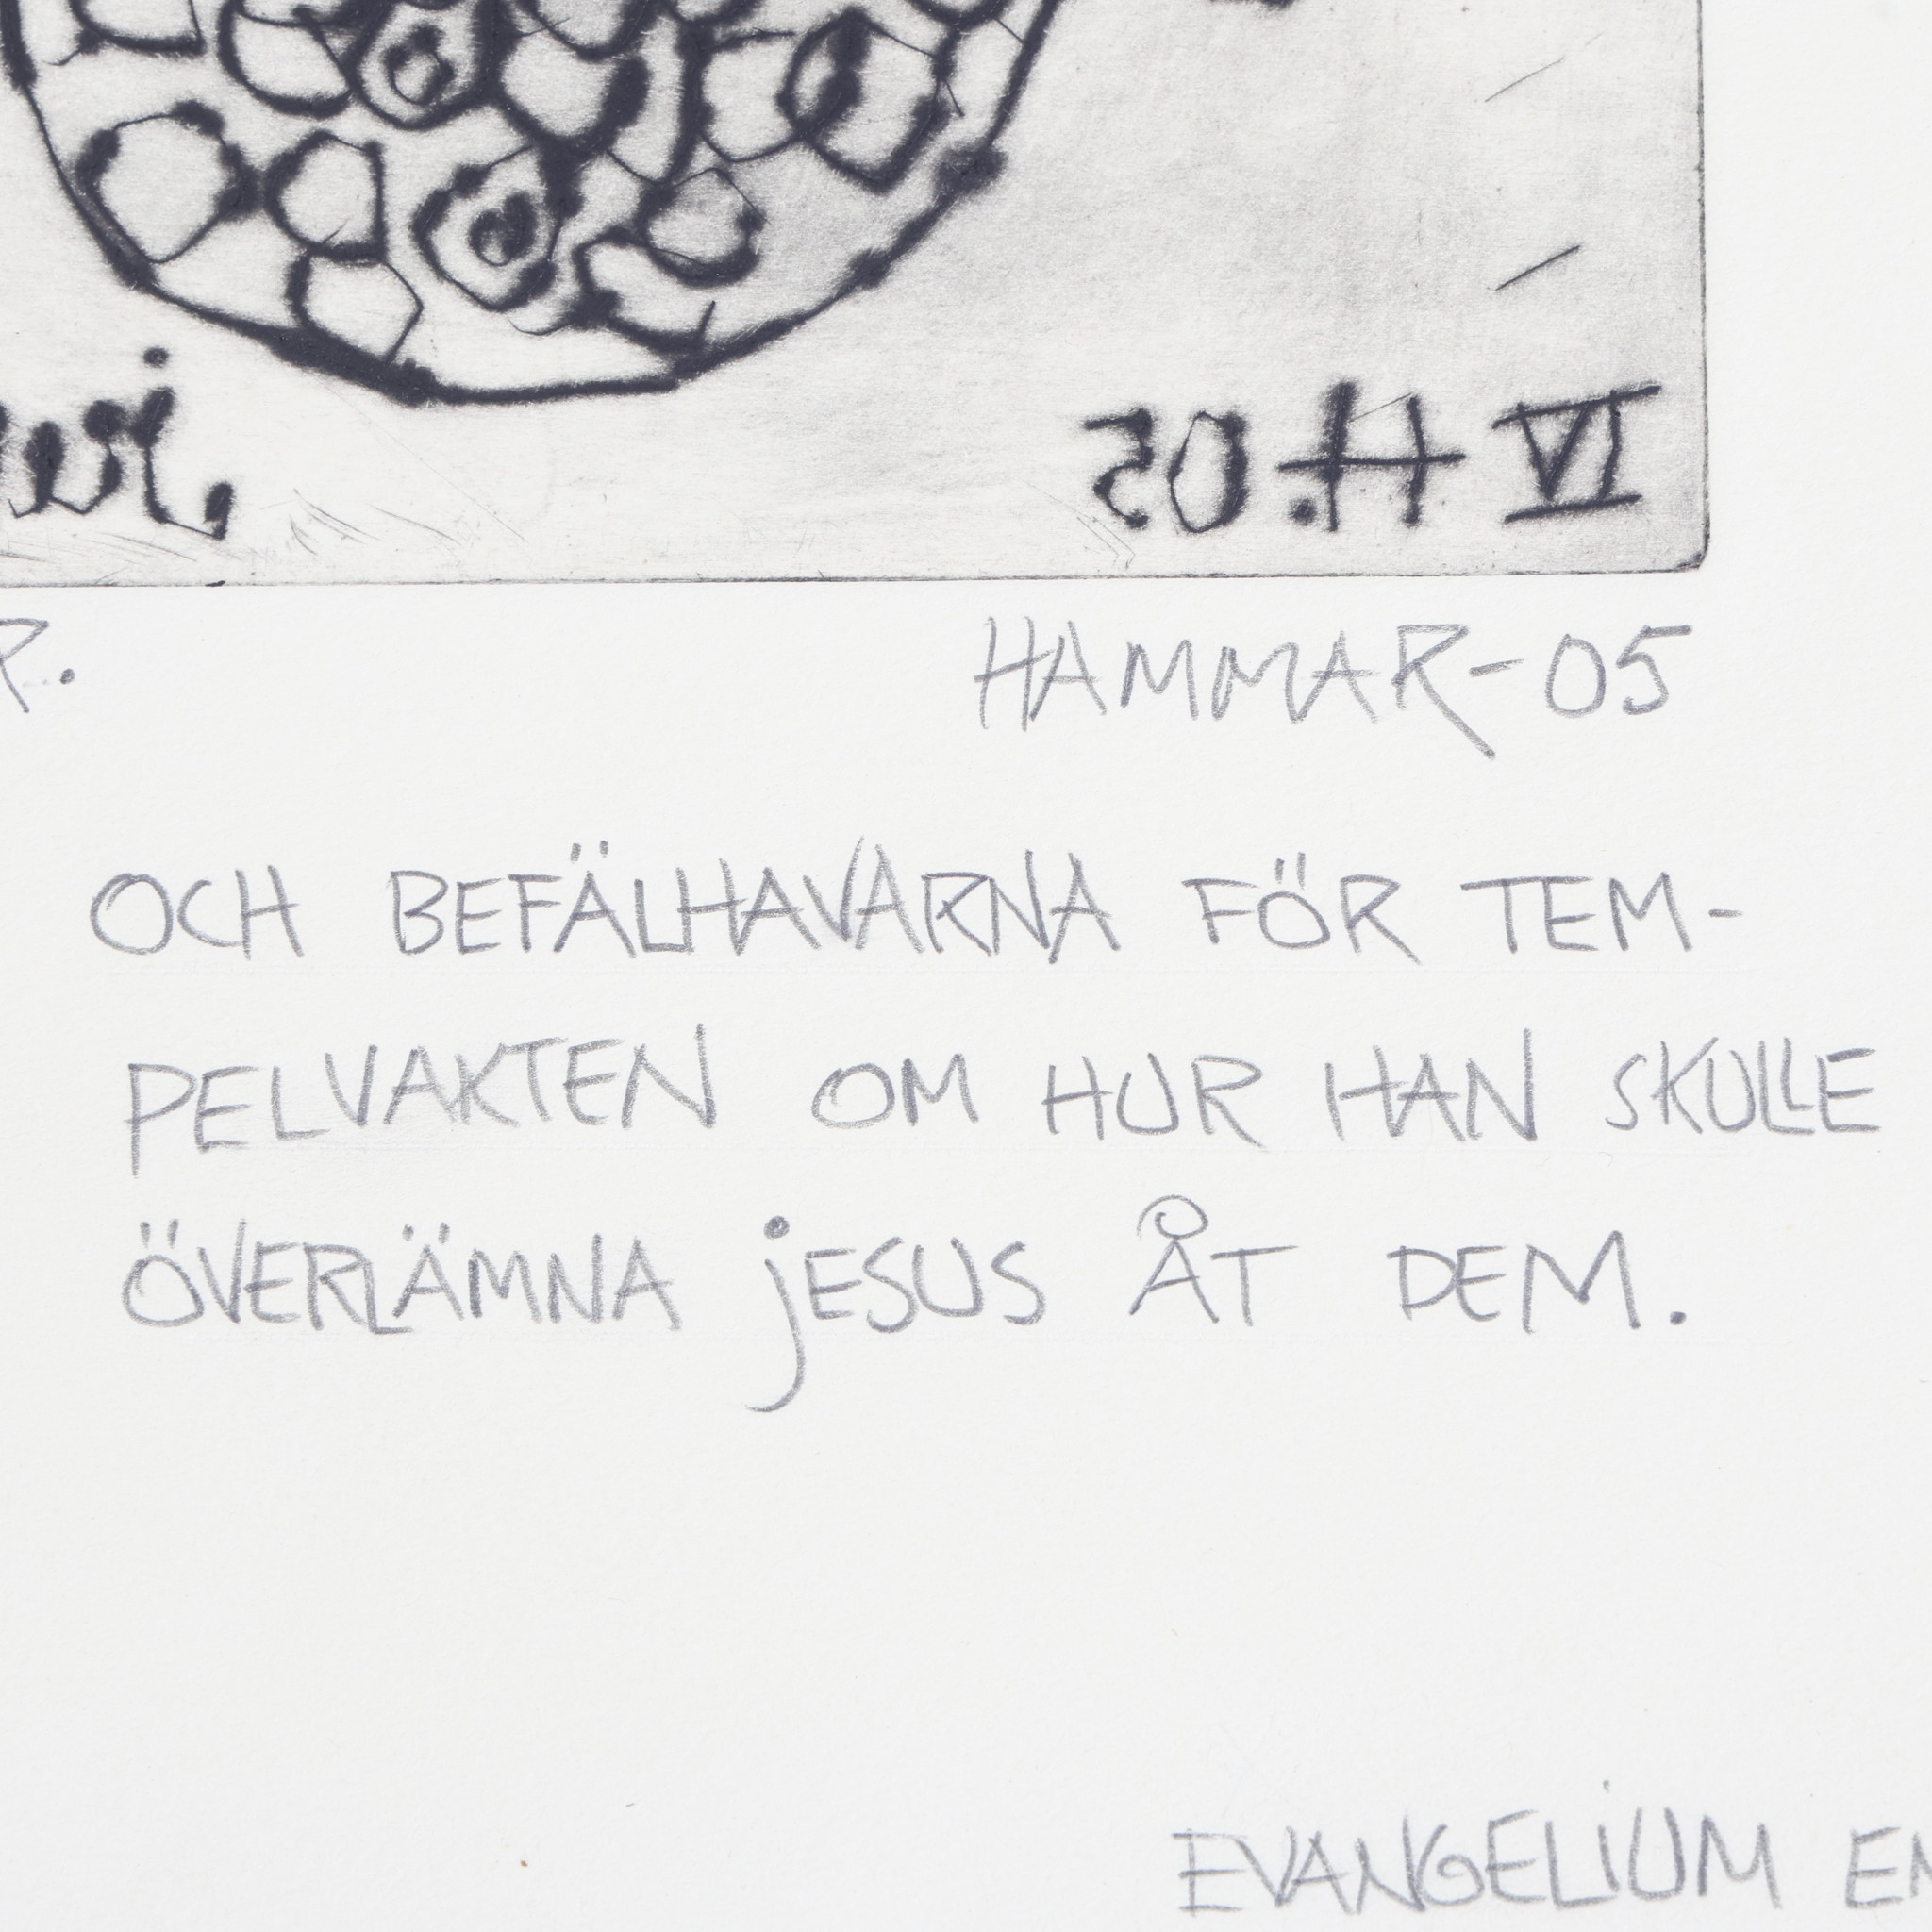 20.H VI
R.
HAMMAR-05
OCH BEFÄLHAVARNA FÖR TEM-
PELVAKTEN OM HUR HAN SKULLE
ÖVERLÄMNA jESUS ÅT DEM.
EVANGELiUM EN